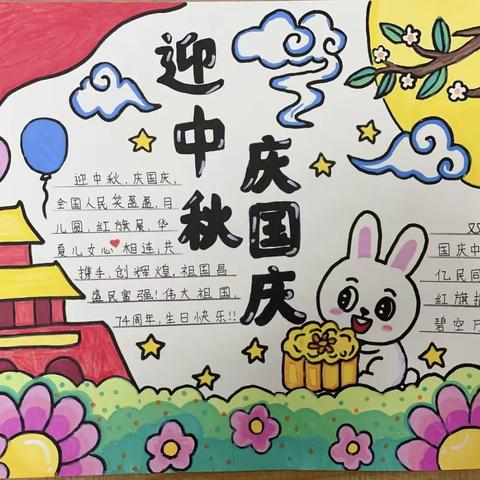 迎中秋
庆国庆
迎中秋,庆国庆,
全国人民笑盈盈,日
儿圆,红旗展,华
夏儿女心❤相连,共
携手,创辉煌,祖国昌
盛民富强!伟大祖国,
74周年,生日快乐!!
双
国庆中
亿民同
红旗招
碧空万